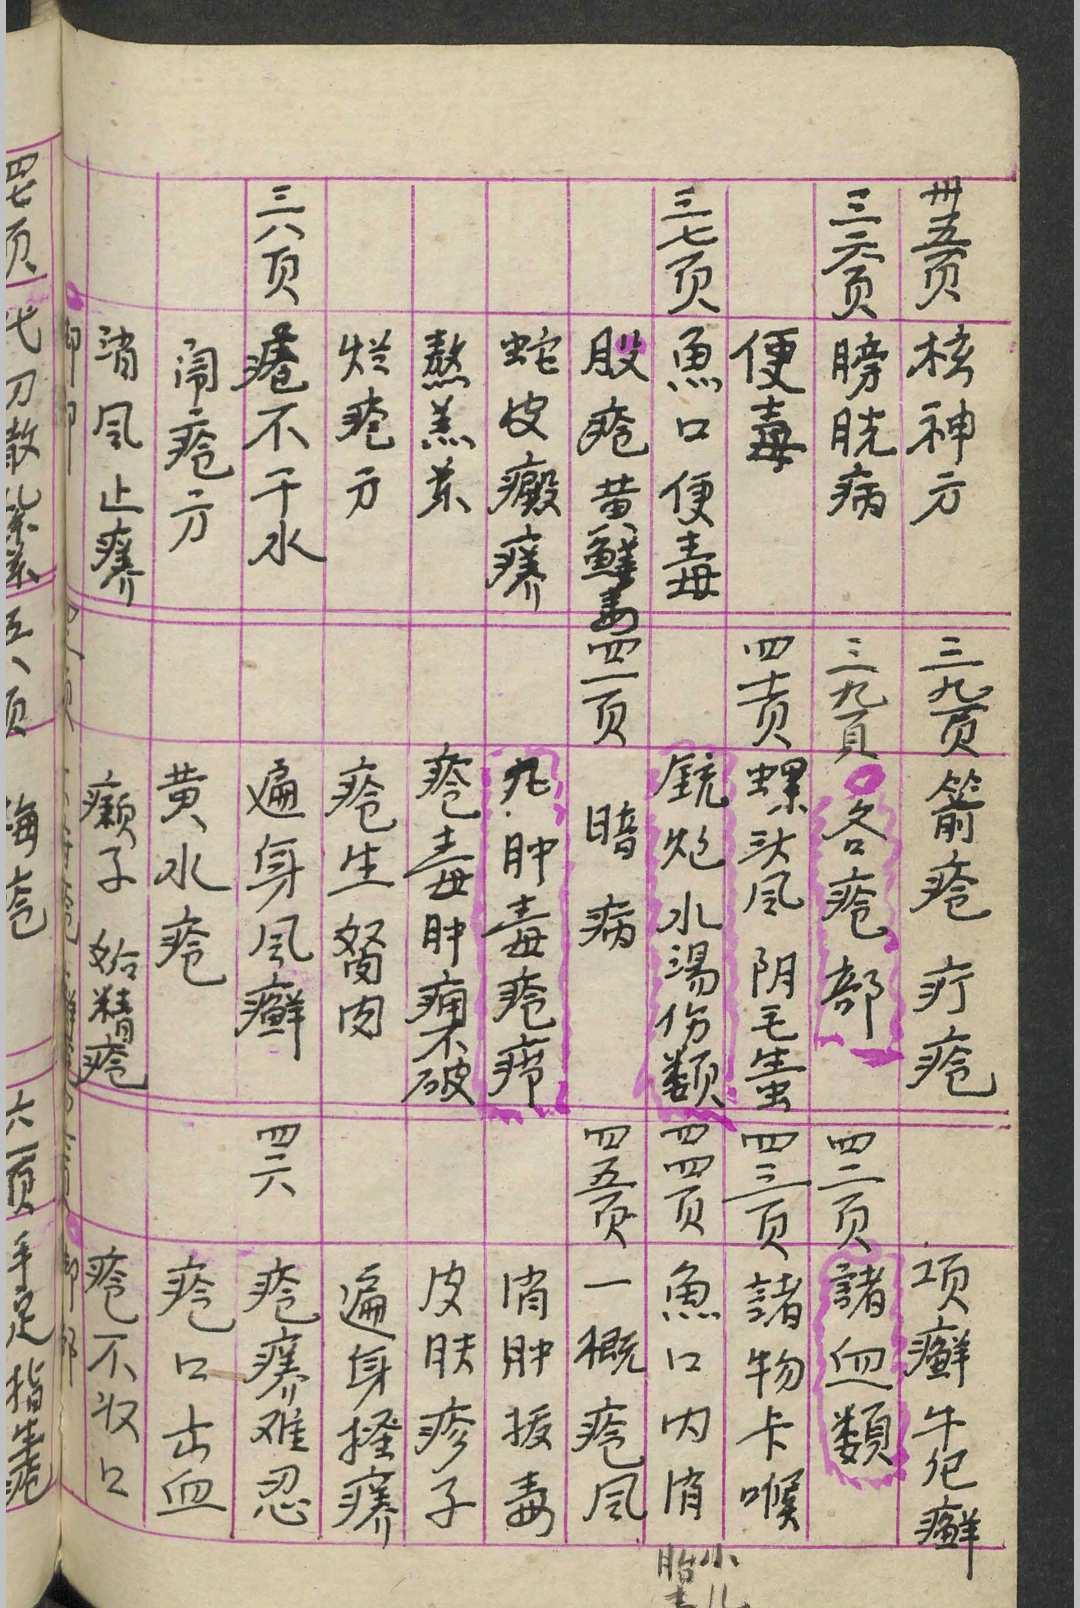 卅五页 核神方
三六页 膀胱病
便毒
三七页 魚口便毒
股疮黄鲜姜
蛇皮癜癢
熬羔菜
烂疮方
三八页 疮不干水
闹疮方
消风止癢
三九页 箭疮 疔疮
三九頁 各疮部
四十页 螺头风 阴毛蚤
銃炮水湯伤類
四一页 暗病
九.肿毒疮疖
疮毒肿痛不破
疮生努肉
遍身风癬
黄水疮
癩子 妬精疮
项癬牛皮癬
四二页 諸血類
四三页 諸物卡喉
四四页 魚口内消
小儿胎毒
四五页 一概疮风
消肿拔毒
皮肤疹子
遍身搔癢
四六 疮癢难忍
疮口出血
疮不收口
四七页 七刀散
五八页
六一页 手足指生疮